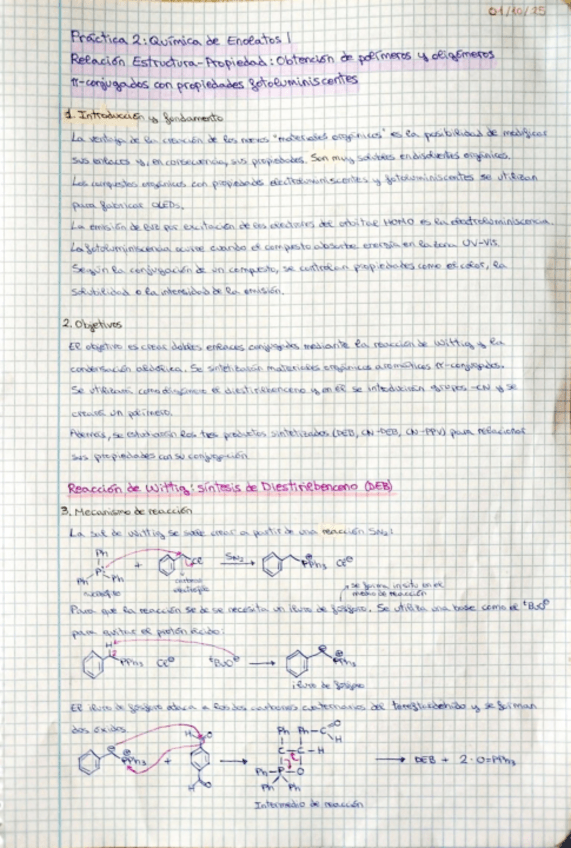 01/10/25
Práctica 2: Química de Enolatos I
Relación Estructura-Propiedad: Obtención de polímeros y oligómeros
π-conjugados con propiedades fotoluminiscentes
1. Introducción y fundamento
La ventaja de la creación de los nuevos "materiales orgánicos" es la posibilidad de modificar
sus enlaces y, en consecuencia, sus propiedades. Son muy solubles en disolventes orgánicos.
Los compuestos orgánicos con propiedades electroluminiscentes y fotoluminiscentes se utilizan
para fabricar OLEDs.
La emisión de luz por excitación de los electrones del orbital HOMO es la electroluminiscencia.
La fotoluminiscencia ocurre cuando el compuesto absorbe energía en la zona UV-Vis.
Según la conjugación de un compuesto, se controlan propiedades como el color, la
solubilidad o la intensidad de la emisión.
2. Objetivos
El objetivo es crear dobles enlaces conjugados mediante la reacción de Wittig y la
condensación aldólica. Se sintetizarán materiales orgánicos aromáticos π-conjugados.
Se utilizará como oligómero el diestirilbenceno y en él se introducirán grupos -CN y se
creará un polímero.
Además, se estudiarán los tres productos sintetizados (DEB, CN-DEB, CN-PPV) para relacionar
sus propiedades con su conjugación
Reacción de Wittig: síntesis de Diestirilbenceno (DEB)
3. Mecanismo de reacción
La sal de Wittig se suele crear a partir de una reacción SN2:
Ph
Ph P: Ph + Cl SN2 PPh3 Cl⊖
nucleófilo
carbono
electrófilo
se forma in situ en el
medio de reacción
Para que la reacción se dé se necesita un iluro de fósforo. Se utiliza una base como el ᵗBuO⊖
para quitar el protón ácido:
H PPh3 Cl⊖ ᵗBuO⊖ PPh3
iluro de fósforo
El iluro de fósforo ataca a los dos carbonos cuaternarios del tereftaldehído y se forman
dos óxidos
PPh3 + H O H O Ph Ph-C O H C-C-H Ph-P-O Ph Ph DEB + 2·O=PPh3
Intermedio de reacción